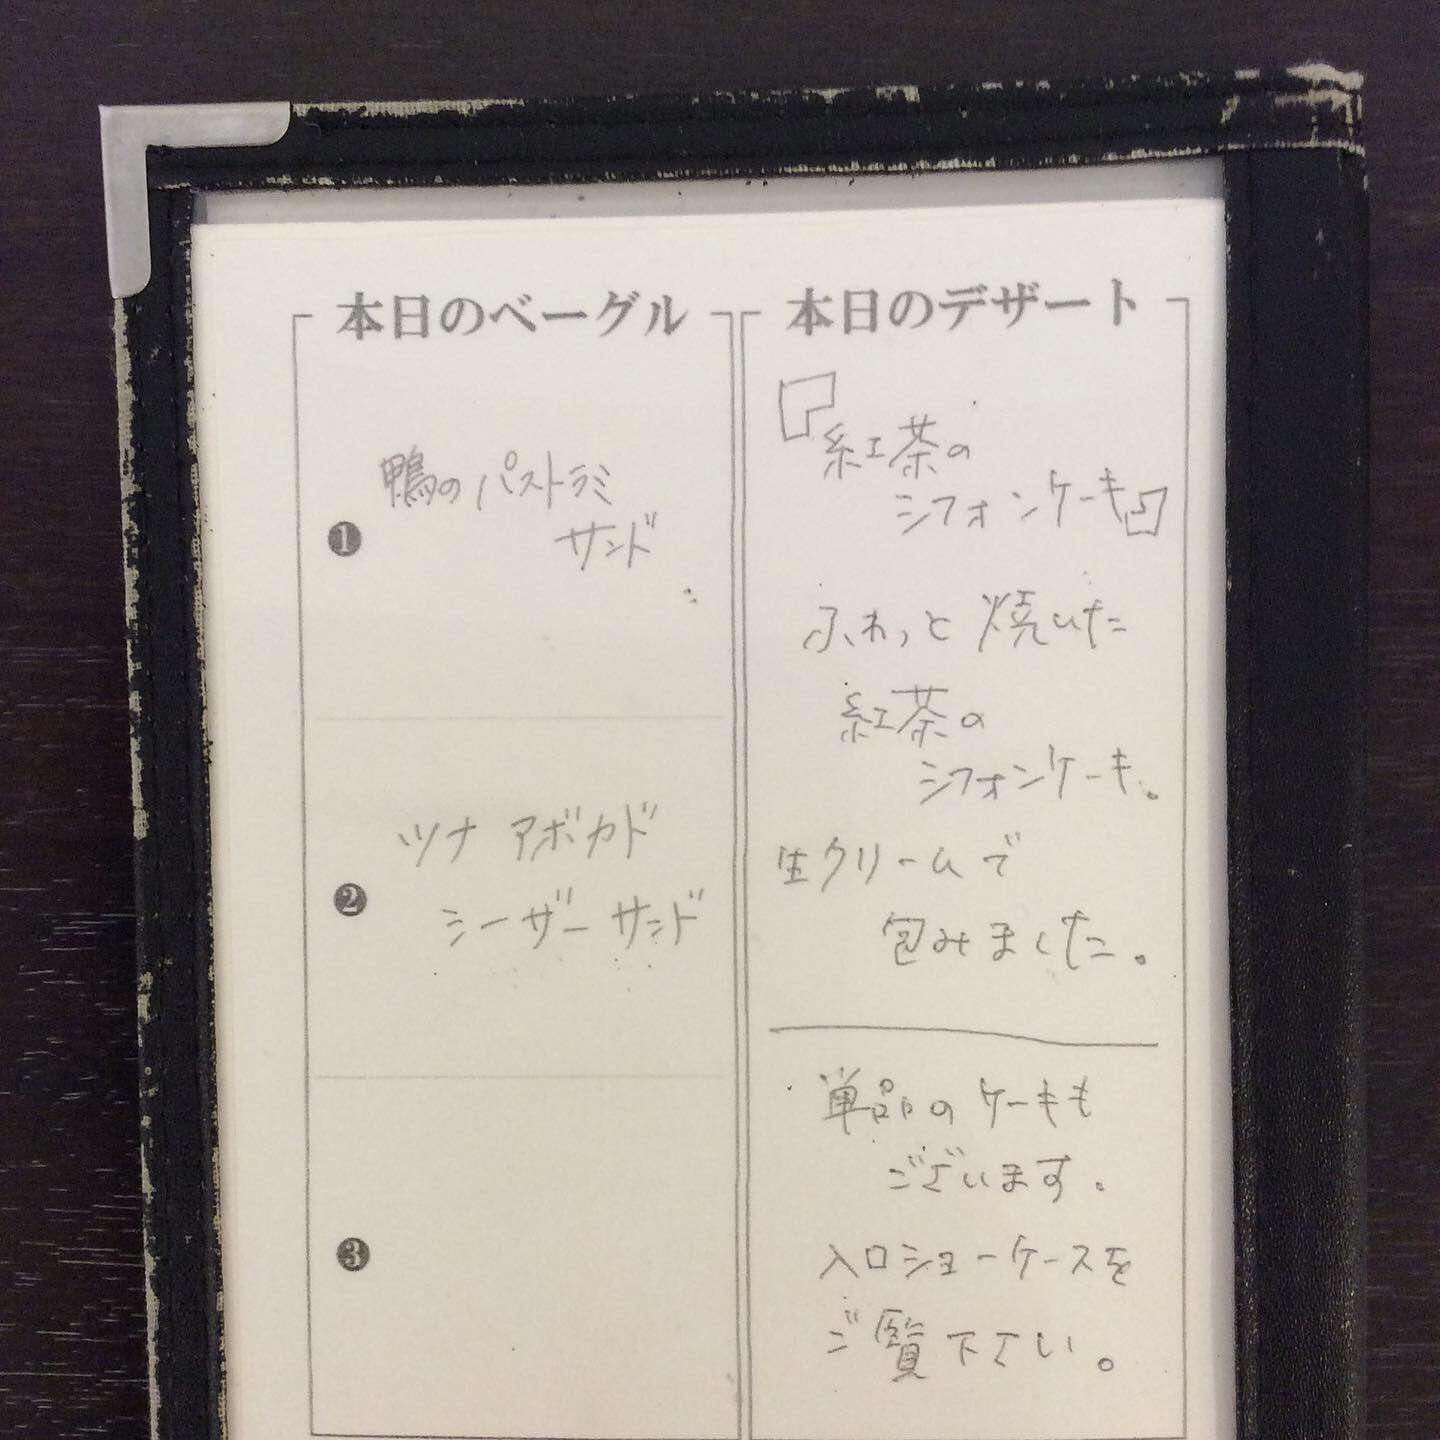 本日のベーグル
❶
鴨のパストラミ
サンド
❷
ツナ アボカド
シーザーサンド
❸
本日のデザート
『紅茶の
シフォンケーキ』
ふわっと焼いた
紅茶の
シフォンケーキ。
生クリームで
包みました。
単品のケーキも
ございます。
入口ショーケースを
ご覧下さい。